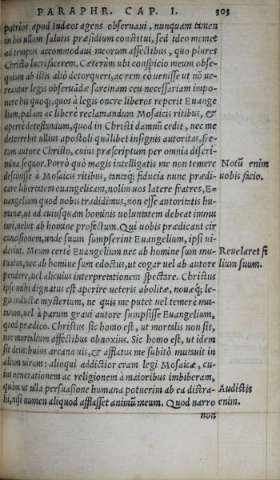 PARAPHR. CAP. I. 303
patrios apud Iudæos agens obseruaui, nunquam tamen
in his ullum salutis præsidium constitui, sed ideo memet
ad tempus accommodaui meorum affectibus, quo plures
Christo lucrifacerem. Cæterum ubi conspicio meum obse-
quium ab istis aliò detorqueri, ac rem eò uenisse ut nō ue-
reantur legis obseruādæ sarcinam ceu necessariam impo-
nere his quoq;, quos à legis onere liberos reperit Euange
lium, palàm ac liberè reclamandum Mosaicis ritibus, &
apertè detestandum, quod in Christi damnū cedit, nec me
deterrebit ullius apostoli quālibet insignis autoritas, sie-
tam autore Christo, cuius præscriptum per omnia discri-
mina sequor. Porrò quò magis intelligatis me non temere
desciuisse à Mosaicis ritibus, tantaq; fiducia nunc prædi-
care libertatem euangelicam, nolim uos latere fratres, E-
uangelium quod uobis tradidimus, non esse autorintis hu-
manæ, ut ad cuiusquam hominis uoluntatem debeat immu
tari, uelut ab homine profectum. Qui uobis prædicant cir
cuncisionem, unde suum sumpserint Euangelium, ipsi ui-
derint. Meum certè Euangelium nec ab homine sum mu-
tuatus, nec ab homine sum edoctus, ut cogar uel ab autore
pendere, uel alicuius interpretationem spectare. Christus
ipse mihi dignatus est aperire ueteris abolitæ, nouæq; le-
gis inductæ mysterium, ne quis me putet uel temere mu-
tatum, uel à parum graui autore sumpsisse Euangelium,
quod prædico. Christus sic homo est, ut mortalis non sit,
nec mortalium affectibus obnoxius. Sic homo est, ut idem
sit deus: huius arcana uis, & afflatus me subitò mutauit in
alium uirum: alioqui addictior eram legi Mosaicæ, cu-
ius uenerationem ac religionem à maioribus imbiberam,
quàm ut ulla persuasione humana potuerim ab ea distra-
hi, nisi numen aliquod afflasset animū meum. Quod narro
non
Notū enim
uobis facio.
Reuelaret fi
lium suum.
Audistis
enim.